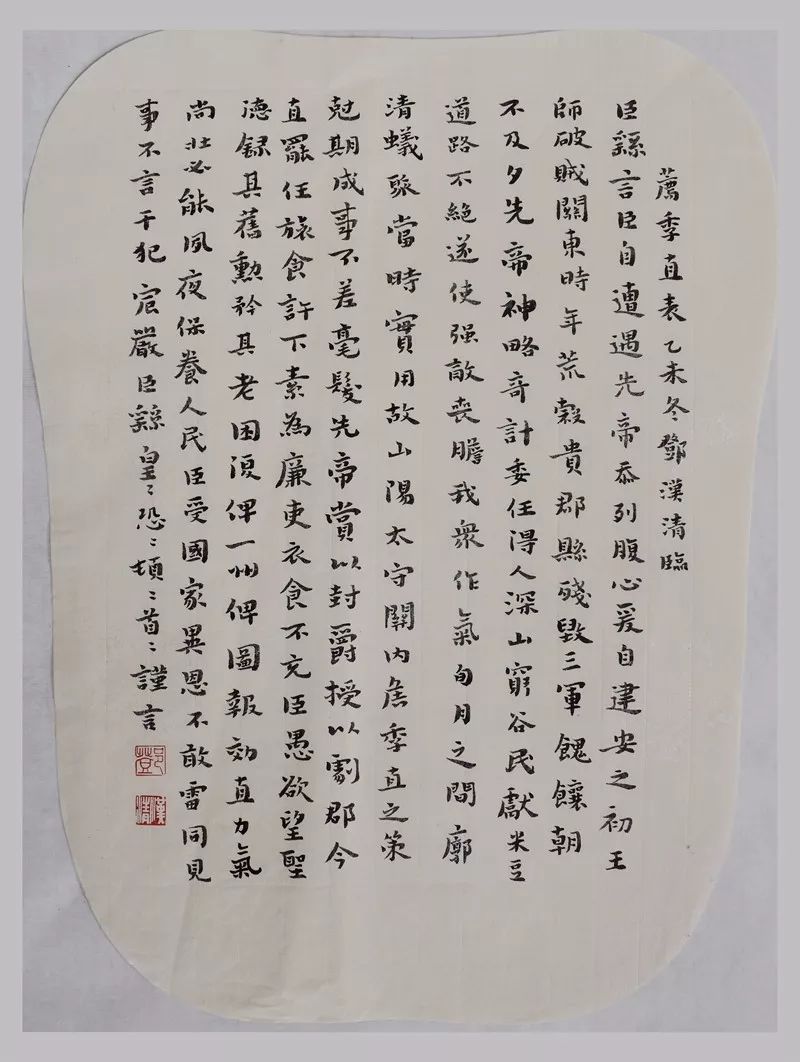 薦季直表乙未冬鄧漢清臨
臣繇言臣自遭遇先帝忝列腹心爰自建安之初王
師破賊關東時年荒穀貴郡縣殘毀三軍餽饟朝
不及夕先帝神略奇計委任得人深山窮谷民獻米豆
道路不絕遂使强敵喪膽我衆作氣旬月之間廓
清蟻聚當時實用故山陽太守關內侯季直之策
尅期成事不差毫髮先帝賞以封爵授以劇郡今
直罷任旅食許下素為廉吏衣食不充臣愚欲望聖
德録其舊勳矜其老困復俾一州俾圖報効直力氣
尚壯必能夙夜保養人民臣受國家異恩不敢雷同見
事不言干犯宸嚴臣繇皇〻恐〻頓〻首〻謹言
漢清